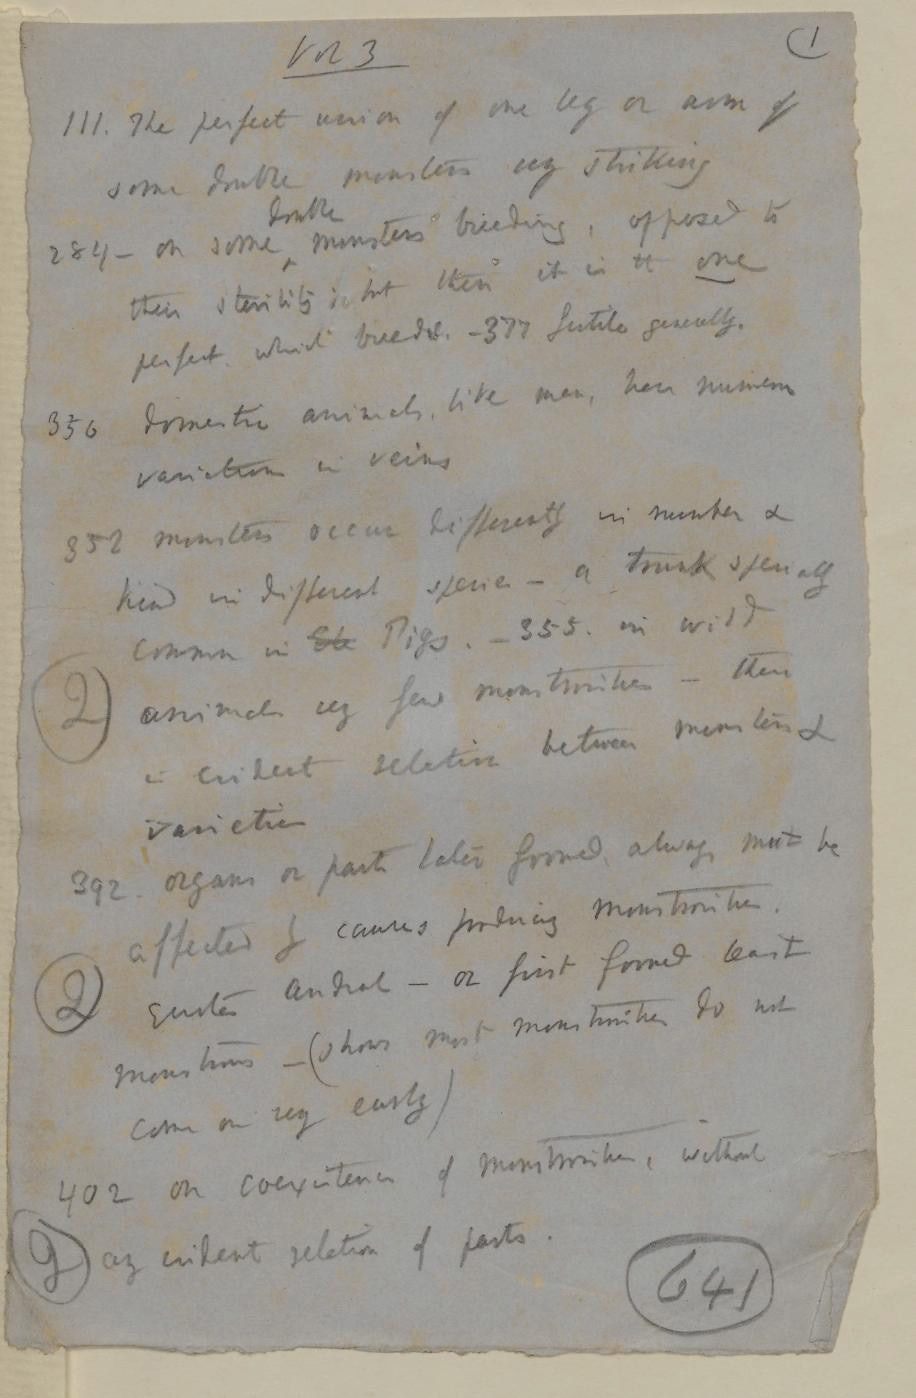 Vol 3
(1
111. The perfect union of one leg or arm of
some double monsters very striking
double
284 — on some ^ monsters breeding, opposed to
their sterility; but then it is the one
perfect which breeds. — 377 fertile generally.
350 domestic animals, like man, have numerous
variations in veins
352 monsters occur differently in number &
kind in different species — a trunk specially
common in Pigs. — 355. in wild
2
animals very few monstrosities — there
is evident relation between monsters &
varieties
392. organs or parts later formed, always most be
affected by causes producing monstrosities.
2
quotes Andral — or first formed least
monstrous — (shows most monstrosities do not
come on very early)
402 on coexistence of monstrosities, without
2
any evident relation of parts.
641